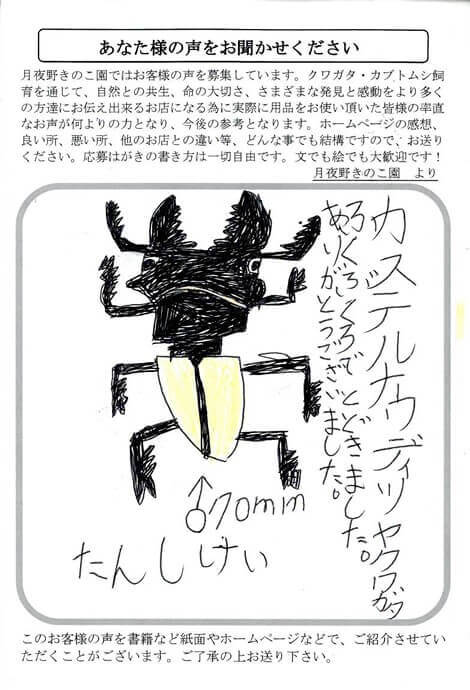 あなた様の声をお聞かせください
月夜野きのこ園ではお客様の声を募集しています。クワガタ・カブトムシ飼
育を通じて、自然との共生、命の大切さ、さまざまな発見と感動をより多く
の方達にお伝え出来るお店になる為に実際に用品をお使い頂いた皆様の率直
なお声が何よりの力となり、今後の参考となります。ホームページの感想、
良い所、悪い所、他のお店との違い等、どんな事でも結構ですので、お送り
ください。応募はがきの書き方は一切自由です。文でも絵でも大歓迎です！
月夜野きのこ園　より
カステルナウディツヤクワガタ
とどきました。
ありがとうございました。
↑
♂70mm
たんしけい
このお客様の声を書籍など紙面やホームページなどで、ご紹介させてい
ただくことがございます。ご了承の上お送り下さい。